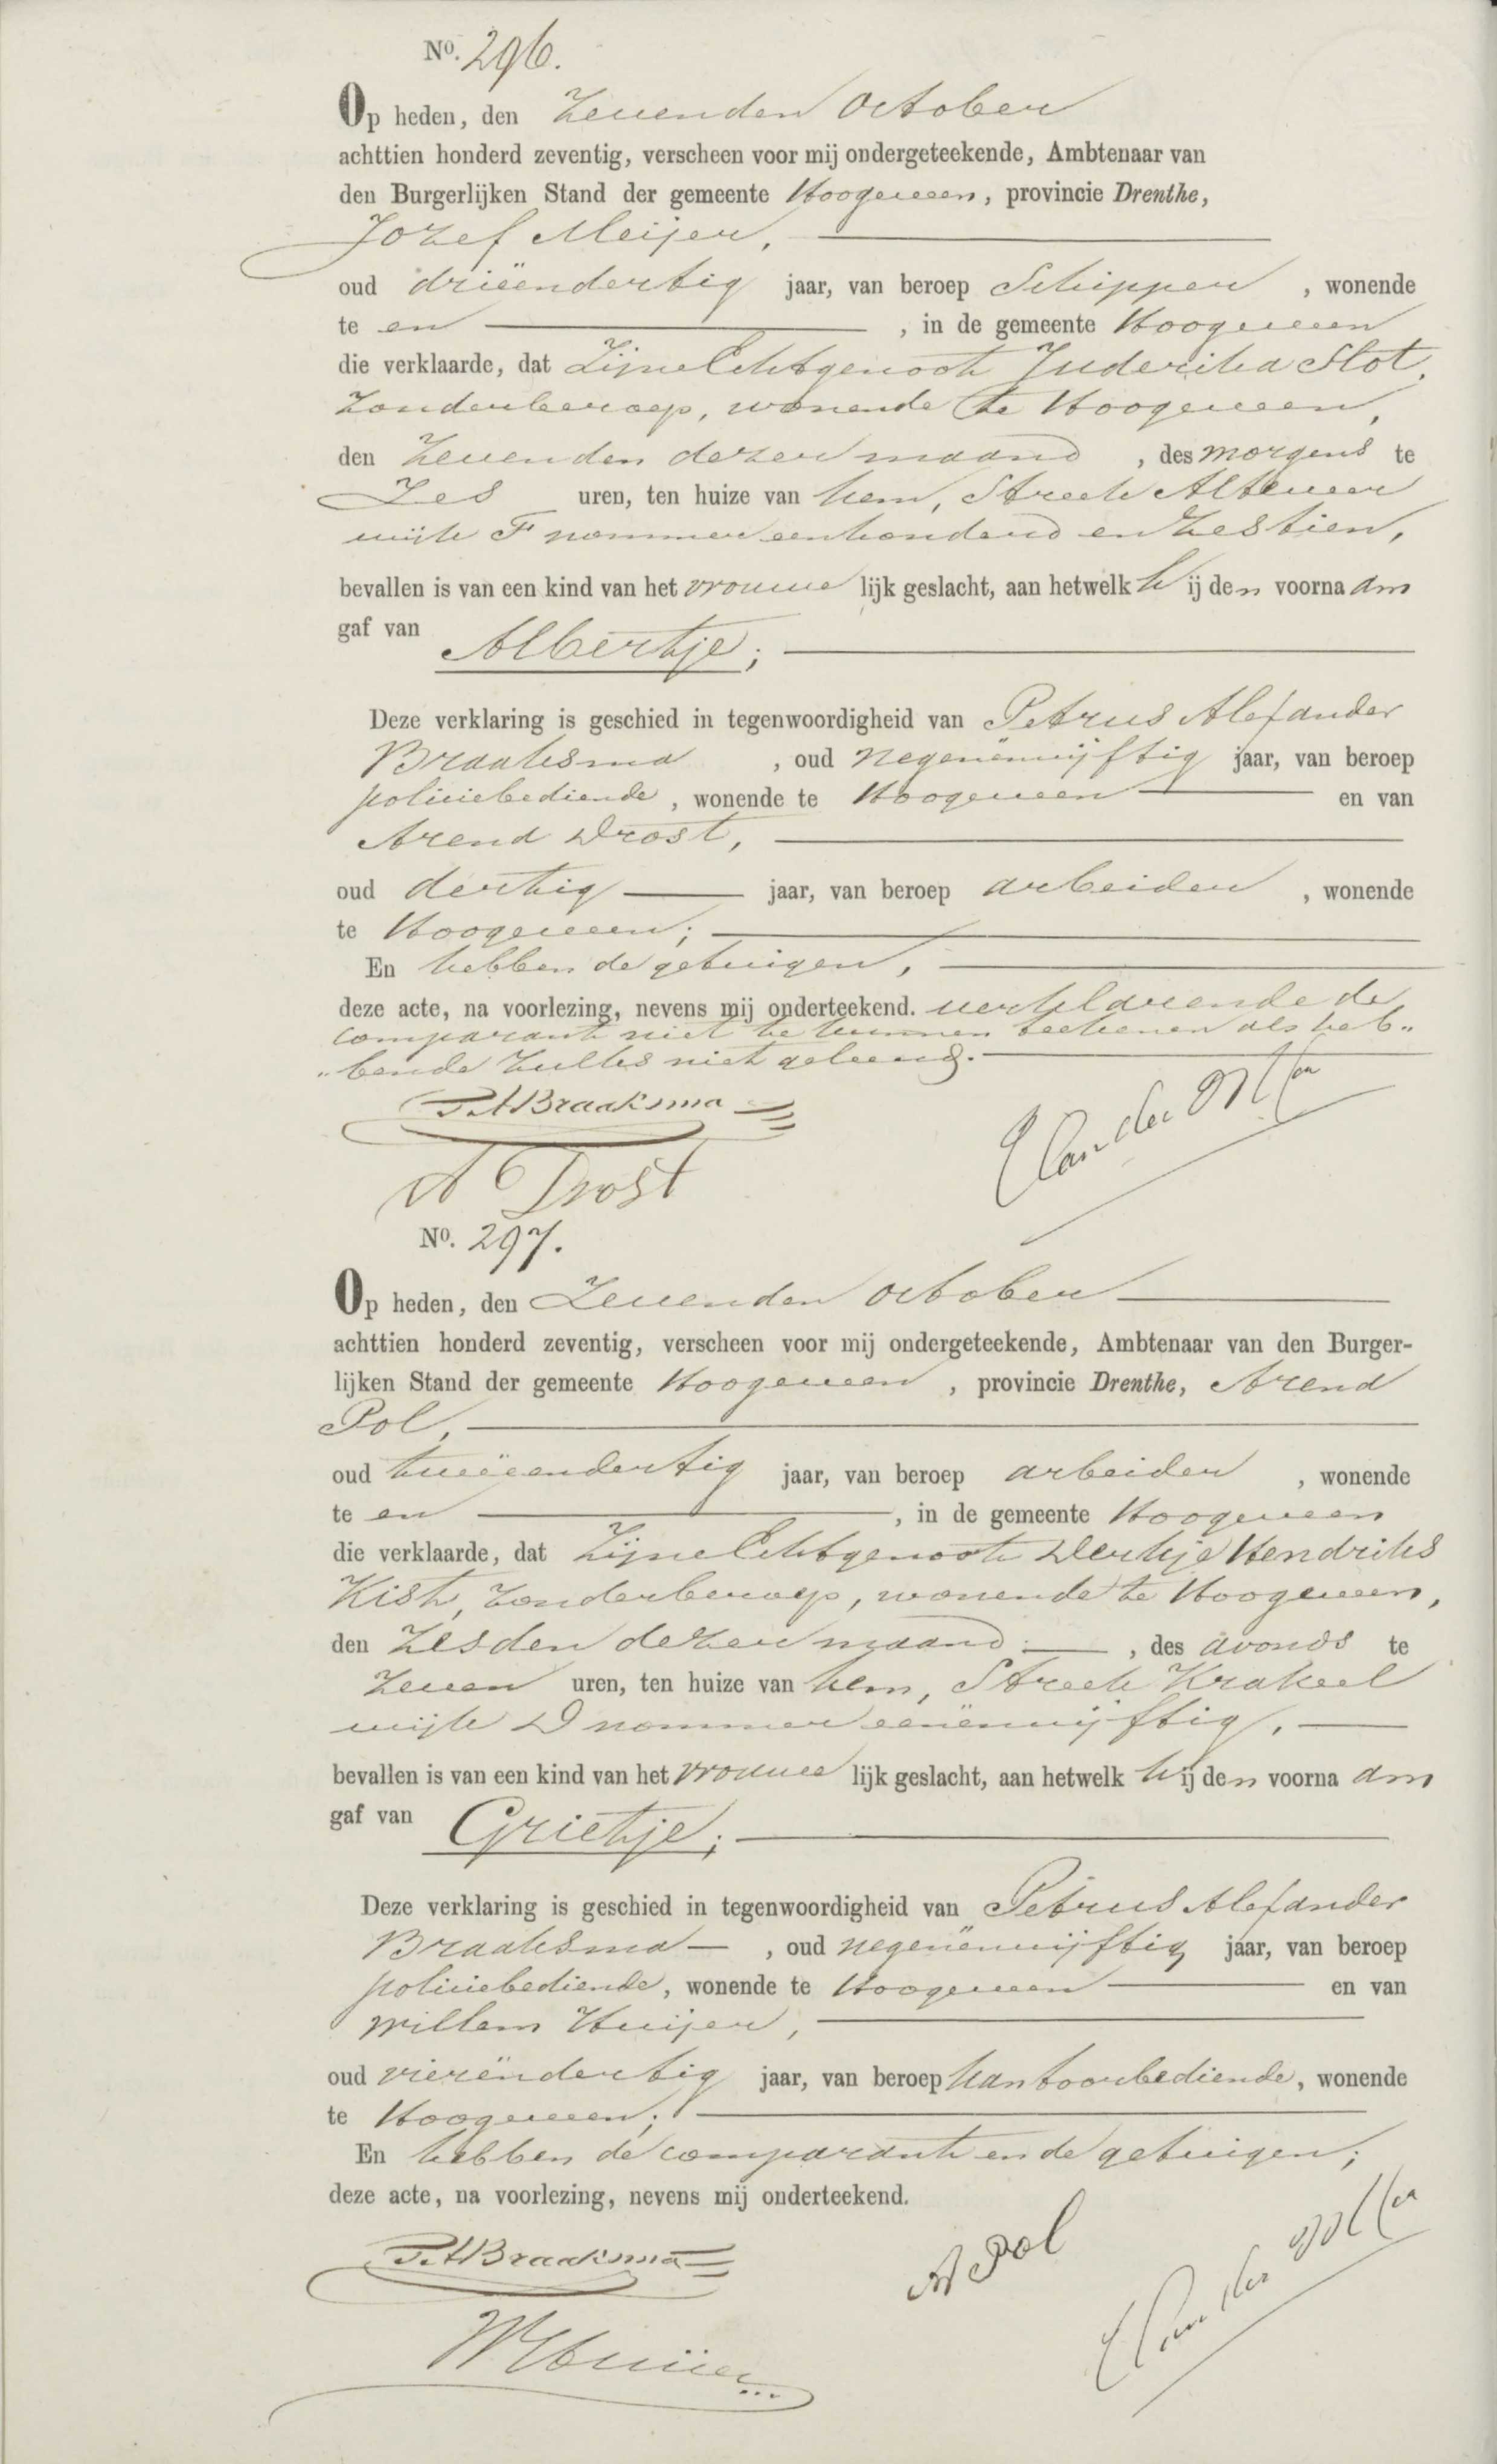 No. 296.
Op heden, den Zevenden October
achttien honderd zeventig, verscheen voor mij ondergeteekende, Ambtenaar van
den Burgerlijken Stand der gemeente Hoogeveen, provincie Drenthe,
Jozef Meijer,
oud drieëndertig jaar, van beroep Schipper, wonende
te en, in de gemeente Hoogeveen
die verklaarde, dat Zijne Echtgenoote Juderika Slot,
Zonder beroep, wonende te Hoogeveen,
den Zevenden dezer maand, des morgens te
Zes uren, ten huize van hem, Streek Alteveer
wijk F nommer eenhonderd en zestien,
bevallen is van een kind van het vrouwelijk geslacht, aan hetwelk hij den voornaam
gaf van Albertje;
Deze verklaring is geschied in tegenwoordigheid van Petrus Alexander
Braaksma, oud negenënvijftig jaar, van beroep
policiebediende, wonende te Hoogeveen en van
Arend Drost,
oud dertig jaar, van beroep arbeider, wonende
te Hoogeveen;
En hebben de getuigen,
deze acte, na voorlezing, nevens mij onderteekend. verklarende de
comparant niet te kunnen teekenen als heb„
„bende zulks niet geleerd.
P.A Braaksma
A Drost
No. 297.
Op heden, den Zevenden October
achttien honderd zeventig, verscheen voor mij ondergeteekende, Ambtenaar van den Burger-
lijken Stand der gemeente Hoogeveen, provincie Drenthe, Arend
Pol,
oud tweeëndertig jaar, van beroep arbeider, wonende
te en, in de gemeente Hoogeveen
die verklaarde, dat Zijne Echtgenoote Derkje Hendriks
Kisk, Zonder beroep, wonende te Hoogeveen,
den Zesden dezer maand, des avonds te
Zeven uren, ten huize van hem, Streek Krakeel
wijk D nommer eenënvijftig,
bevallen is van een kind van het vrouwelijk geslacht, aan hetwelk hij den voornaam
gaf van Grietje;
Deze verklaring is geschied in tegenwoordigheid van Petrus Alexander
Braaksma, oud negenënvijftig jaar, van beroep
policiebediende, wonende te Hoogeveen en van
Willem Huijer,
oud vierëndertig jaar, van beroep kantoorbediende, wonende
te Hoogeveen;
En hebben de comparant en de getuigen;
deze acte, na voorlezing, nevens mij onderteekend.
P.A Braaksma
A Pol
W Huijer